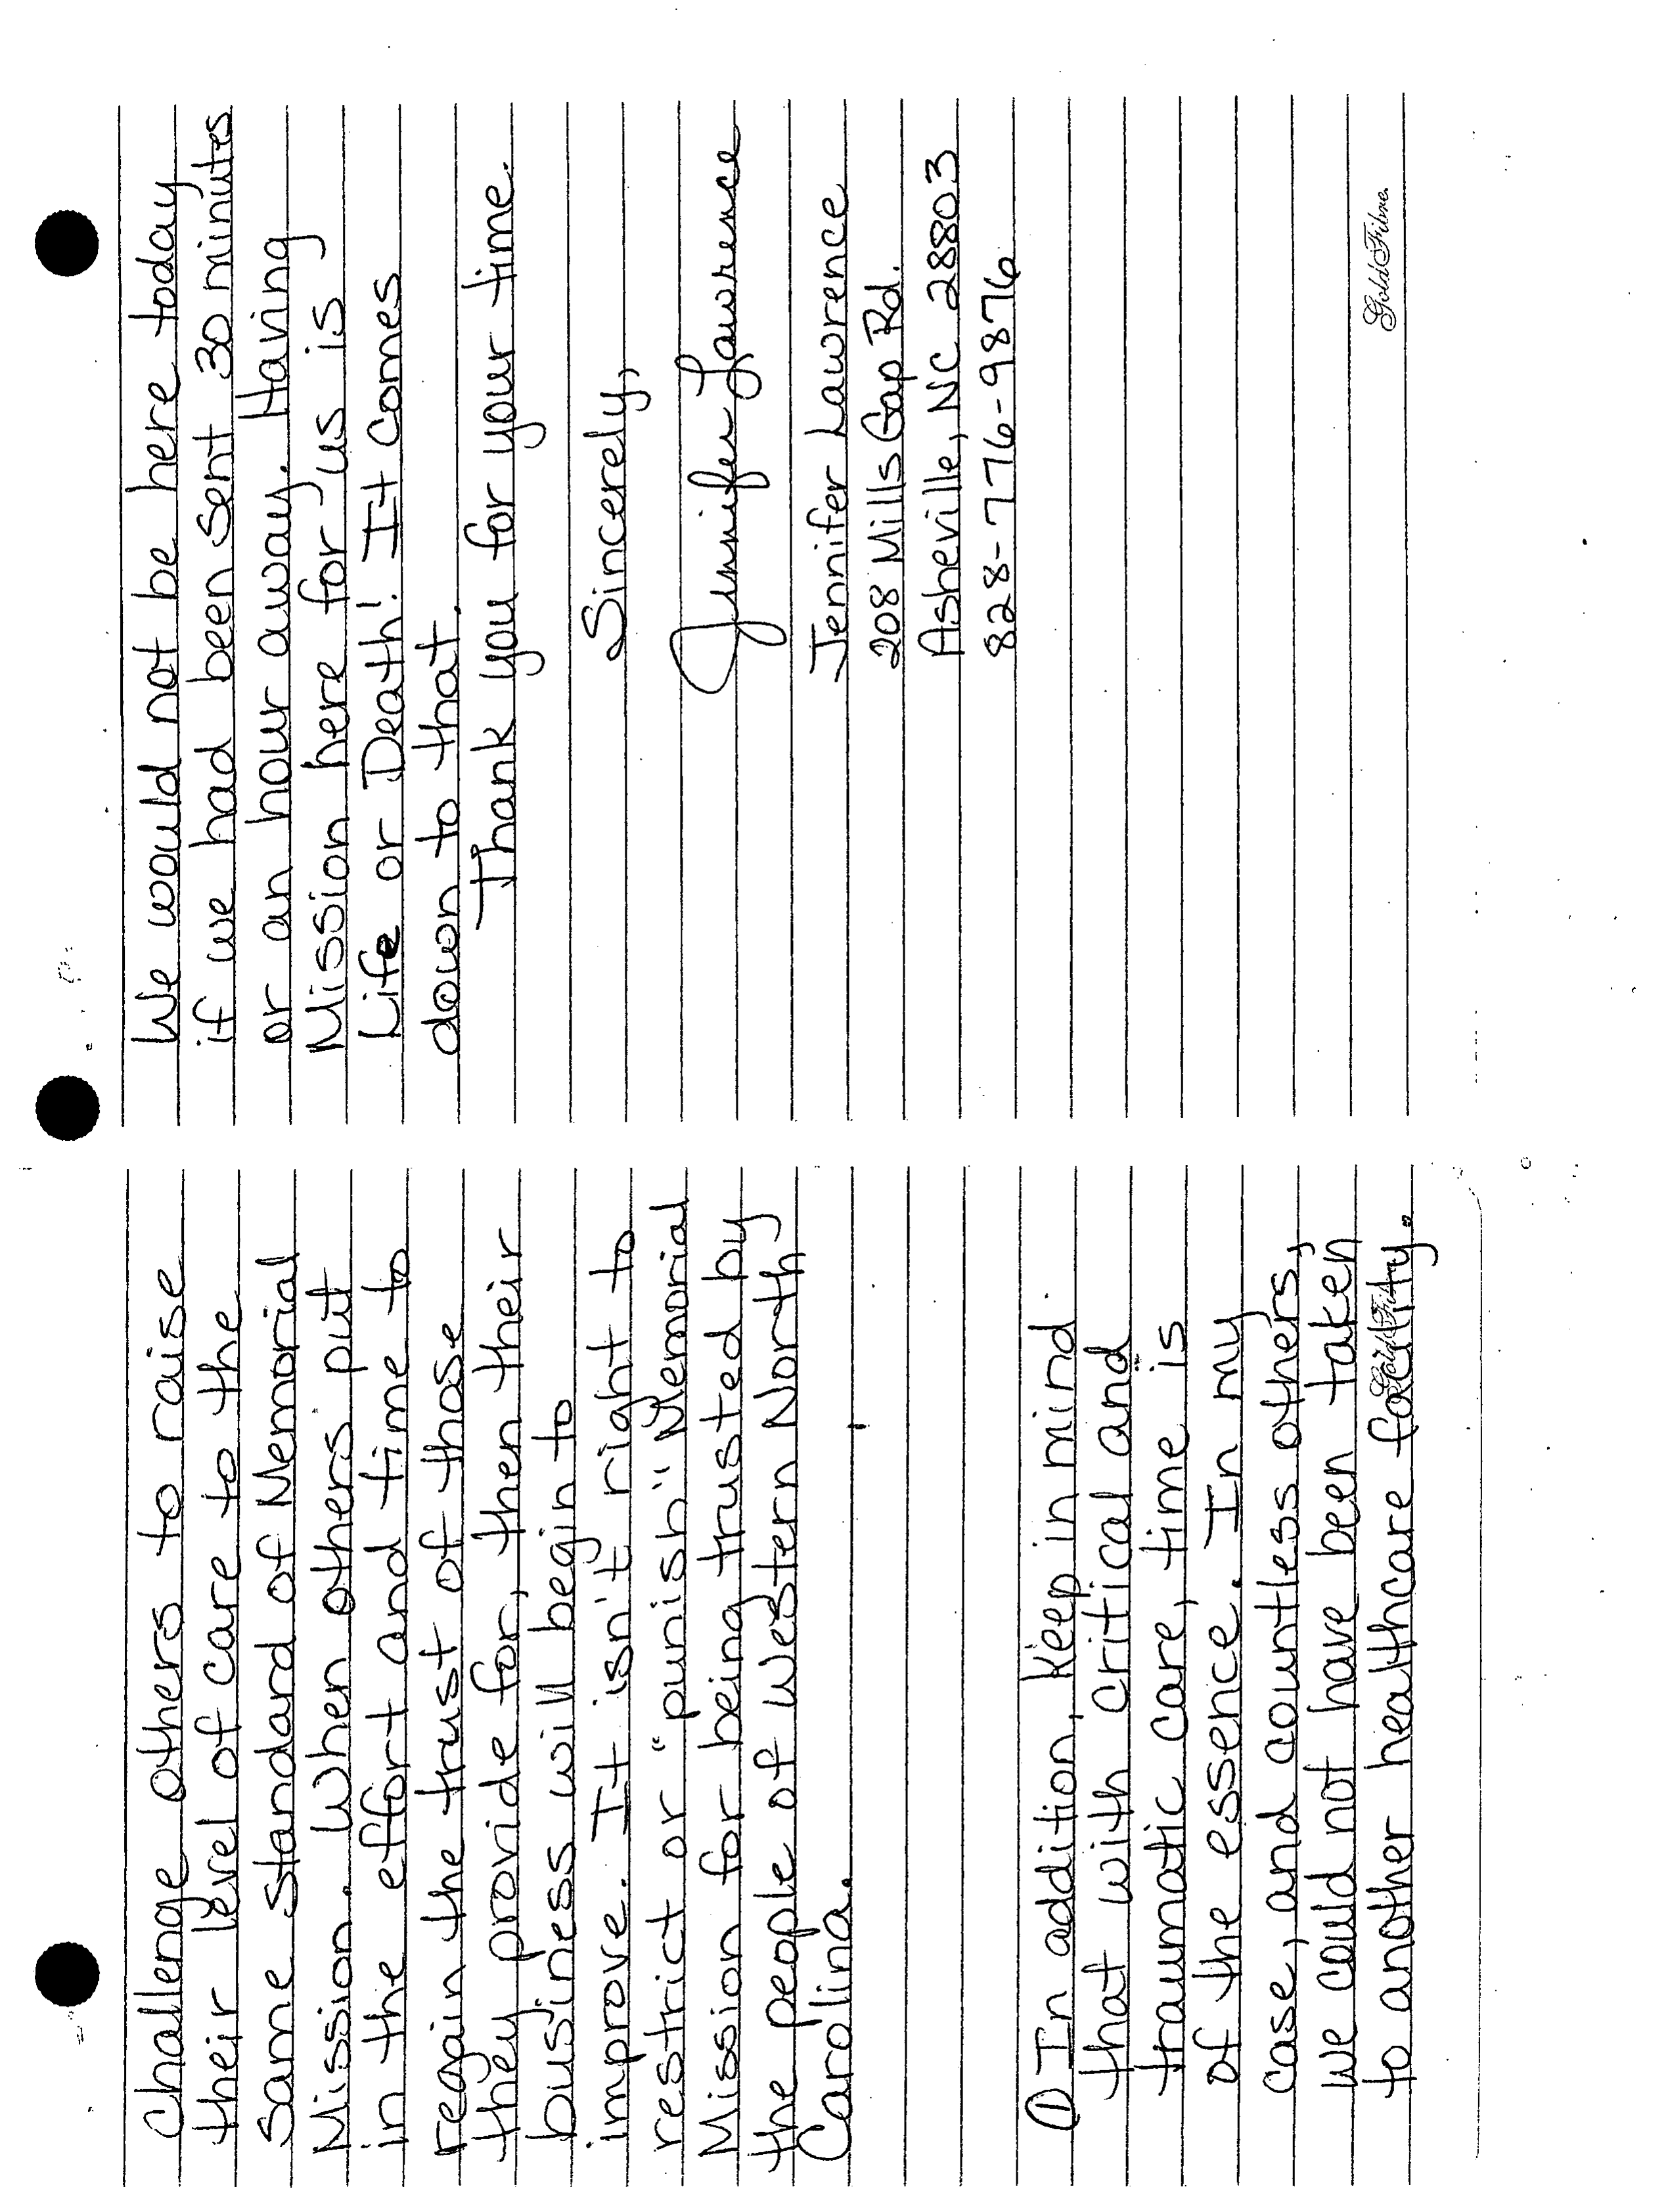 Challenge others to raise
their level of care to the
same standard of Memorial
Mission. When others put
in the effort and time to
regain the trust of those
they provide for, then their
business will begin to
improve. It isn't right to
restrict or "punish" Memorial
Mission for being trusted by
the people of Western North
Carolina.
① In addition, keep in mind
that with critical and
traumatic care, time is
of the essence. In my
case, and countless others,
we could not have been taken
to another healthcare facility.
Gold Fibre
We would not be here today
if we had been sent 30 minutes
or an hour away. Having
Mission here for us is
Life or Death! It comes
down to that.
Thank you for your time.
Sincerely,
Jennifer Lawrence
Jennifer Lawrence
208 Mills Gap Rd.
Asheville, NC 28803
828-776-9876
Gold Fibre